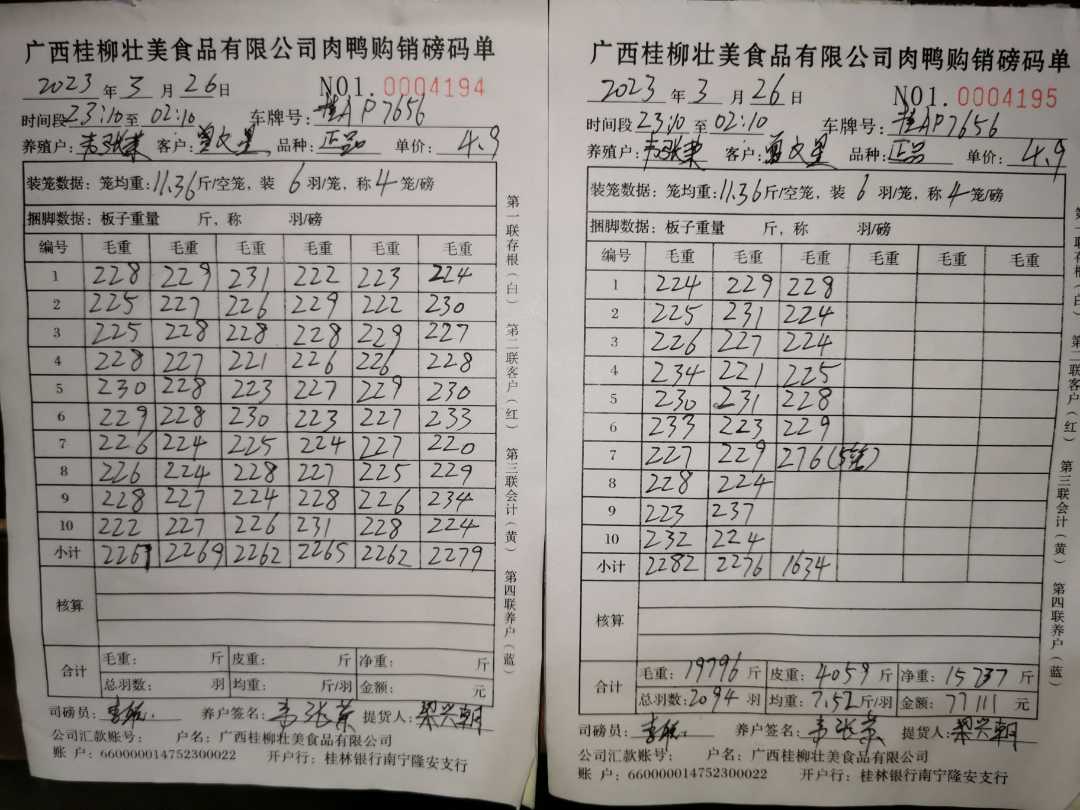 广西桂柳壮美食品有限公司肉鸭购销磅码单
2023 年 3 月 26 日 NO1. 0004194
时间段 23:10 至 02:10 车牌号: 桂AP7656
养殖户: 韦张荣 客户: 品种: 正品 单价: 4.9
装笼数据: 笼均重: 11.36 斤/空笼, 装 6 羽/笼, 称 4 笼/磅
捆脚数据: 板子重量 斤, 称 羽/磅
编号 毛重 毛重 毛重 毛重 毛重 毛重
1 228 229 231 222 223 224
2 225 227 226 229 222 230
3 225 228 228 228 229 227
4 228 227 221 226 226 228
5 230 228 223 227 229 230
6 229 228 230 223 227 233
7 226 224 225 224 227 220
8 226 224 228 227 225 229
9 228 227 224 228 226 234
10 222 227 226 231 228 224
小计 2267 2269 2262 2265 2262 2279
核算
合计 毛重: 斤 皮重: 斤 净重: 斤
总羽数: 羽 均重: 斤/羽 金额: 元
司磅员: 养户签名: 韦张荣 提货人: 梁兴朝
公司汇款账号: 户名: 广西桂柳壮美食品有限公司
账 户: 660000014752300022 开户行: 桂林银行南宁隆安支行
第一联存根(白) 第二联客户(红) 第三联会计(黄) 第四联养户(蓝)
广西桂柳壮美食品有限公司肉鸭购销磅码单
2023 年 3 月 26 日 NO1. 0004195
时间段 23:10 至 02:10 车牌号: 桂AP7656
养殖户: 韦张荣 客户: 品种: 正品 单价: 4.9
装笼数据: 笼均重: 11.36 斤/空笼, 装 6 羽/笼, 称 4 笼/磅
捆脚数据: 板子重量 斤, 称 羽/磅
编号 毛重 毛重 毛重 毛重 毛重 毛重
1 224 229 228
2 225 231 224
3 226 227 224
4 234 221 225
5 230 231 228
6 233 223 229
7 227 229 276(5笼)
8 228 224
9 223 237
10 232 224
小计 2282 2276 1634
核算
合计 毛重: 19796 斤 皮重: 4059 斤 净重: 15737 斤
总羽数: 2094 羽 均重: 7.52 斤/羽 金额: 77111 元
司磅员: 养户签名: 韦张荣 提货人: 梁兴朝
公司汇款账号: 户名: 广西桂柳壮美食品有限公司
账 户: 660000014752300022 开户行: 桂林银行南宁隆安支行
第一联存根(白) 第二联客户(红) 第三联会计(黄) 第四联养户(蓝)